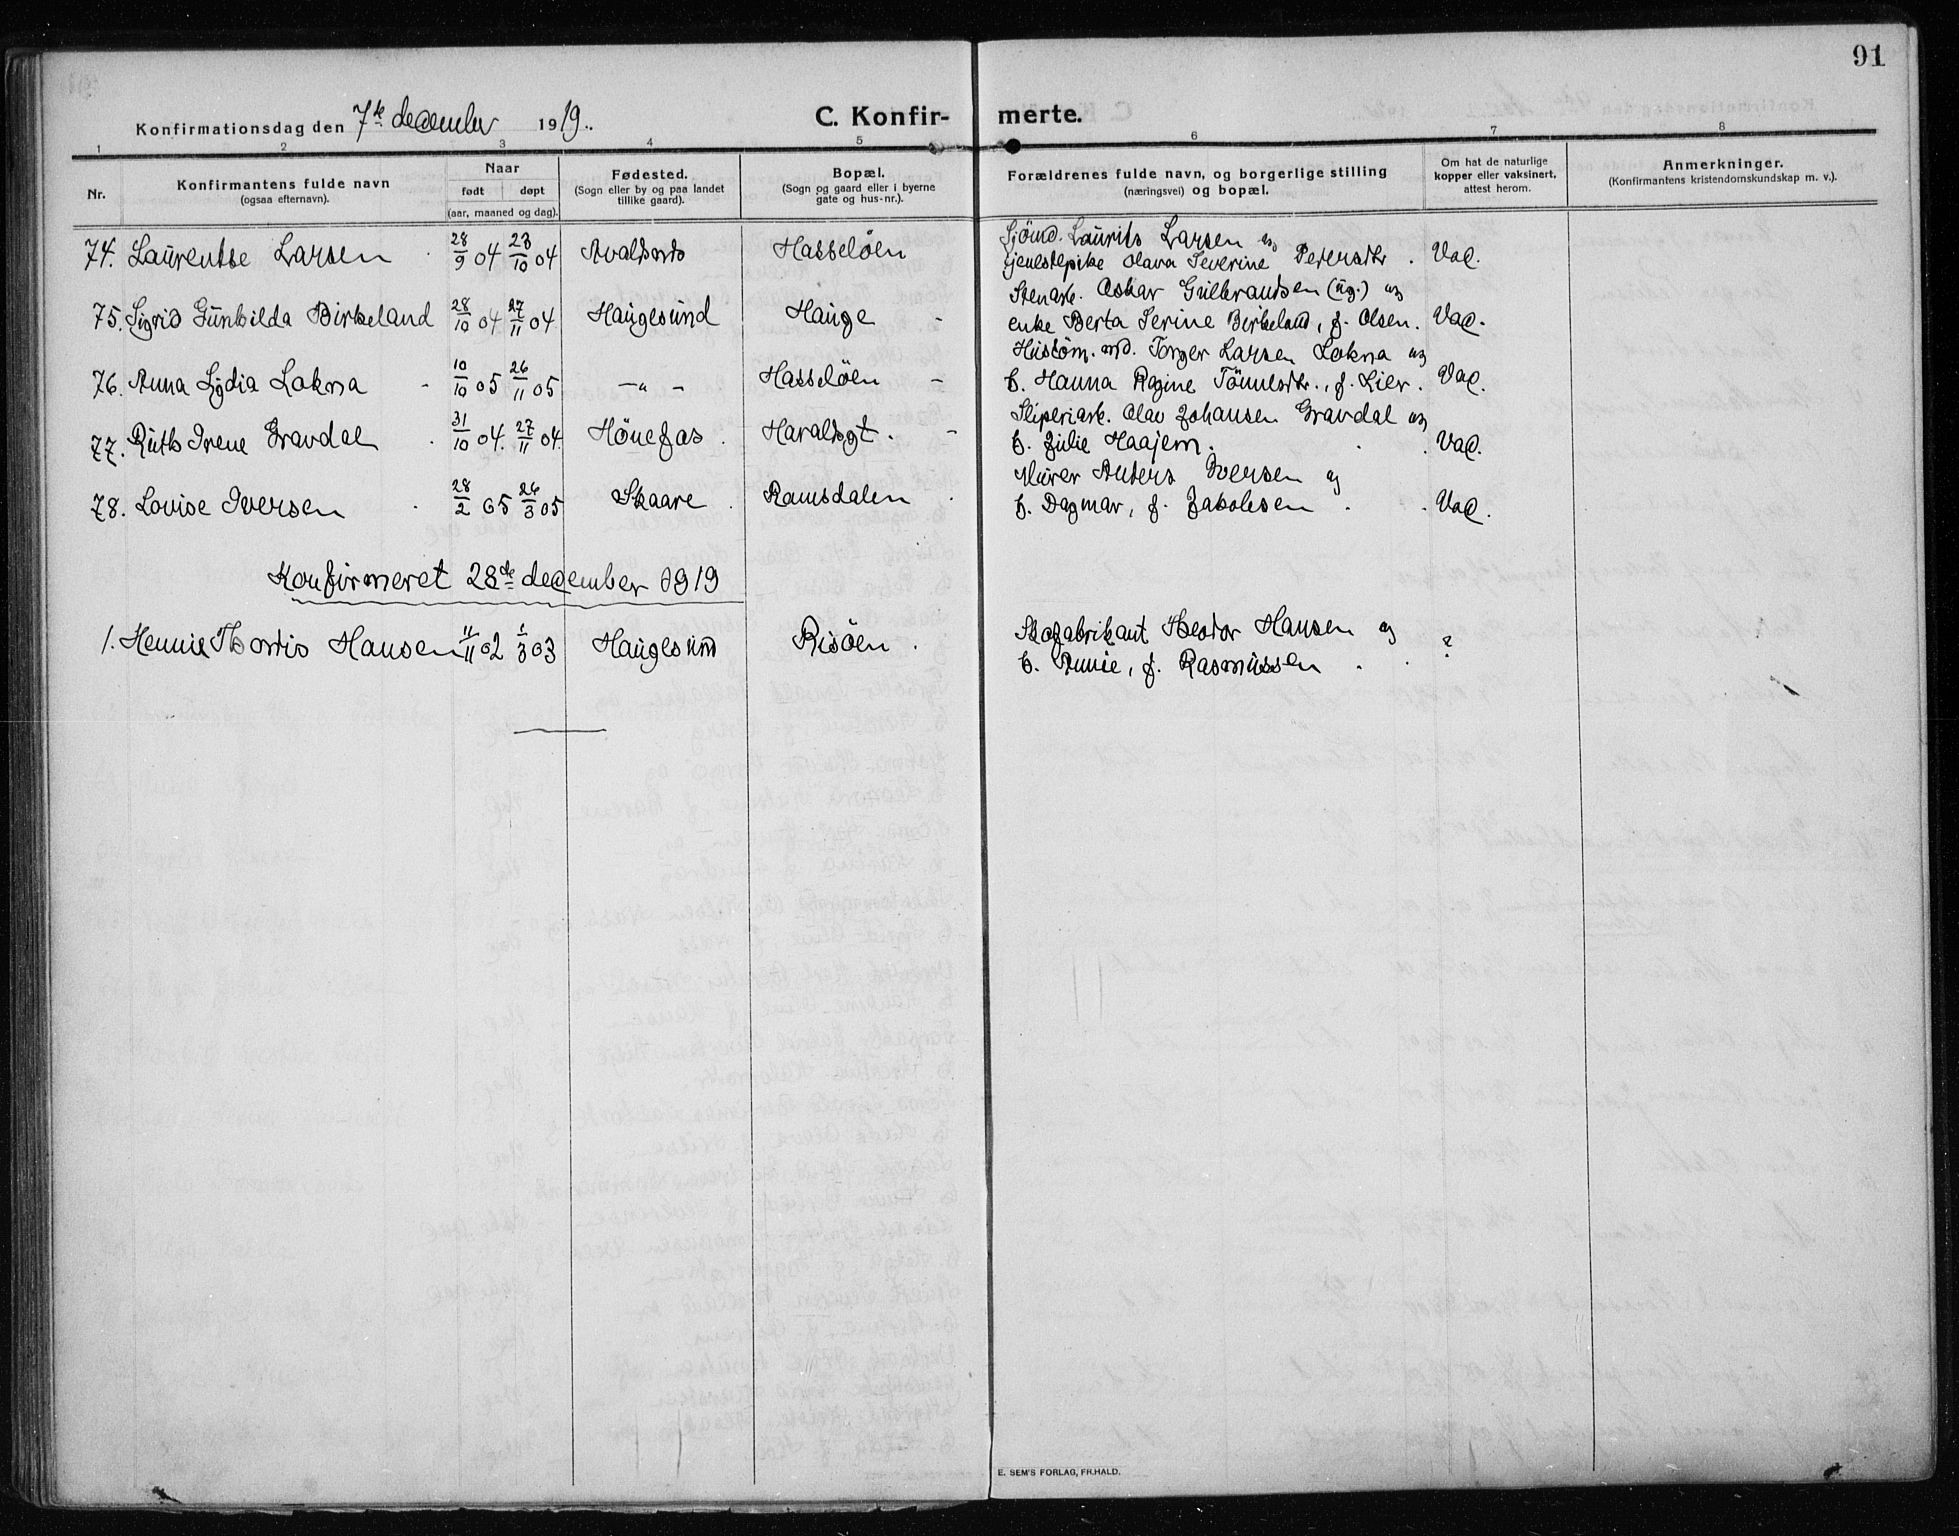 91
Konfirmationsdag den 7de december 1919.
C. Konfir- merte.
1 2 3 4 5 6 7 8
Nr.
Konfirmantens fulde navn
(ogsaa efternavn).
Naar
født døpt
(aar, maaned og dag).
Fødested.
(Sogn eller by og paa landet
tillike gaard).
Bopæl.
(Sogn og gaard eller i byerne
gate og hus-nr.).
Forældrenes fulde navn, og borgerlige stilling
(næringsvei) og bopæl.
Om hat de naturlige
kopper eller vaksinert,
attest herom.
Anmerkninger.
(Konfirmantens kristendomskundskap m. v.).
Sjömd. Laurits Larsen og
74. Laurentse Larsen 28/9 04 23/10 04 Avaldsnes Hasseløen tjenestepike Olava Severine Pedersdtr. Vac.
Stenarb. Oskar Gulbrandsen (ug.) og
75. Sigrid Gunhilda Birkeland 28/10 04 27/11 04 Haugesund Hauge - enke Berta Serine Birkeland, f. Olsen. Vac.
Hustöm. md. Torger Larsen Lokna og
76. Anna Lydia Lokna - 10/10 05 26/11 05 -"- Hasseløen - h. Hanna Regine Tönnesdtr., f. Lier. Vac.
Sliperiarb. Olav Johansen Gravdal og
77. Ruth Irene Gravdal 31/10 04. 27/11 04. Hönefos. Haraldsgt. - h. Julie Haajem. Vac.
Murer Anders Iversen og
78. Lovise Iversen 28/2 05 26/3 05 Skaare. Ramsdalen h. Dagmar, f. Jakobsen Vac.
Konfirmeret 28de december 1919
Skofabrikant Theodor Hansen og
1. Hennie Thordis Hansen 11/11 02 1/3 03 Haugesund Risöen. h. Annie, f. Rasmussen ?
E. SEM'S FORLAG, FR.HALD.